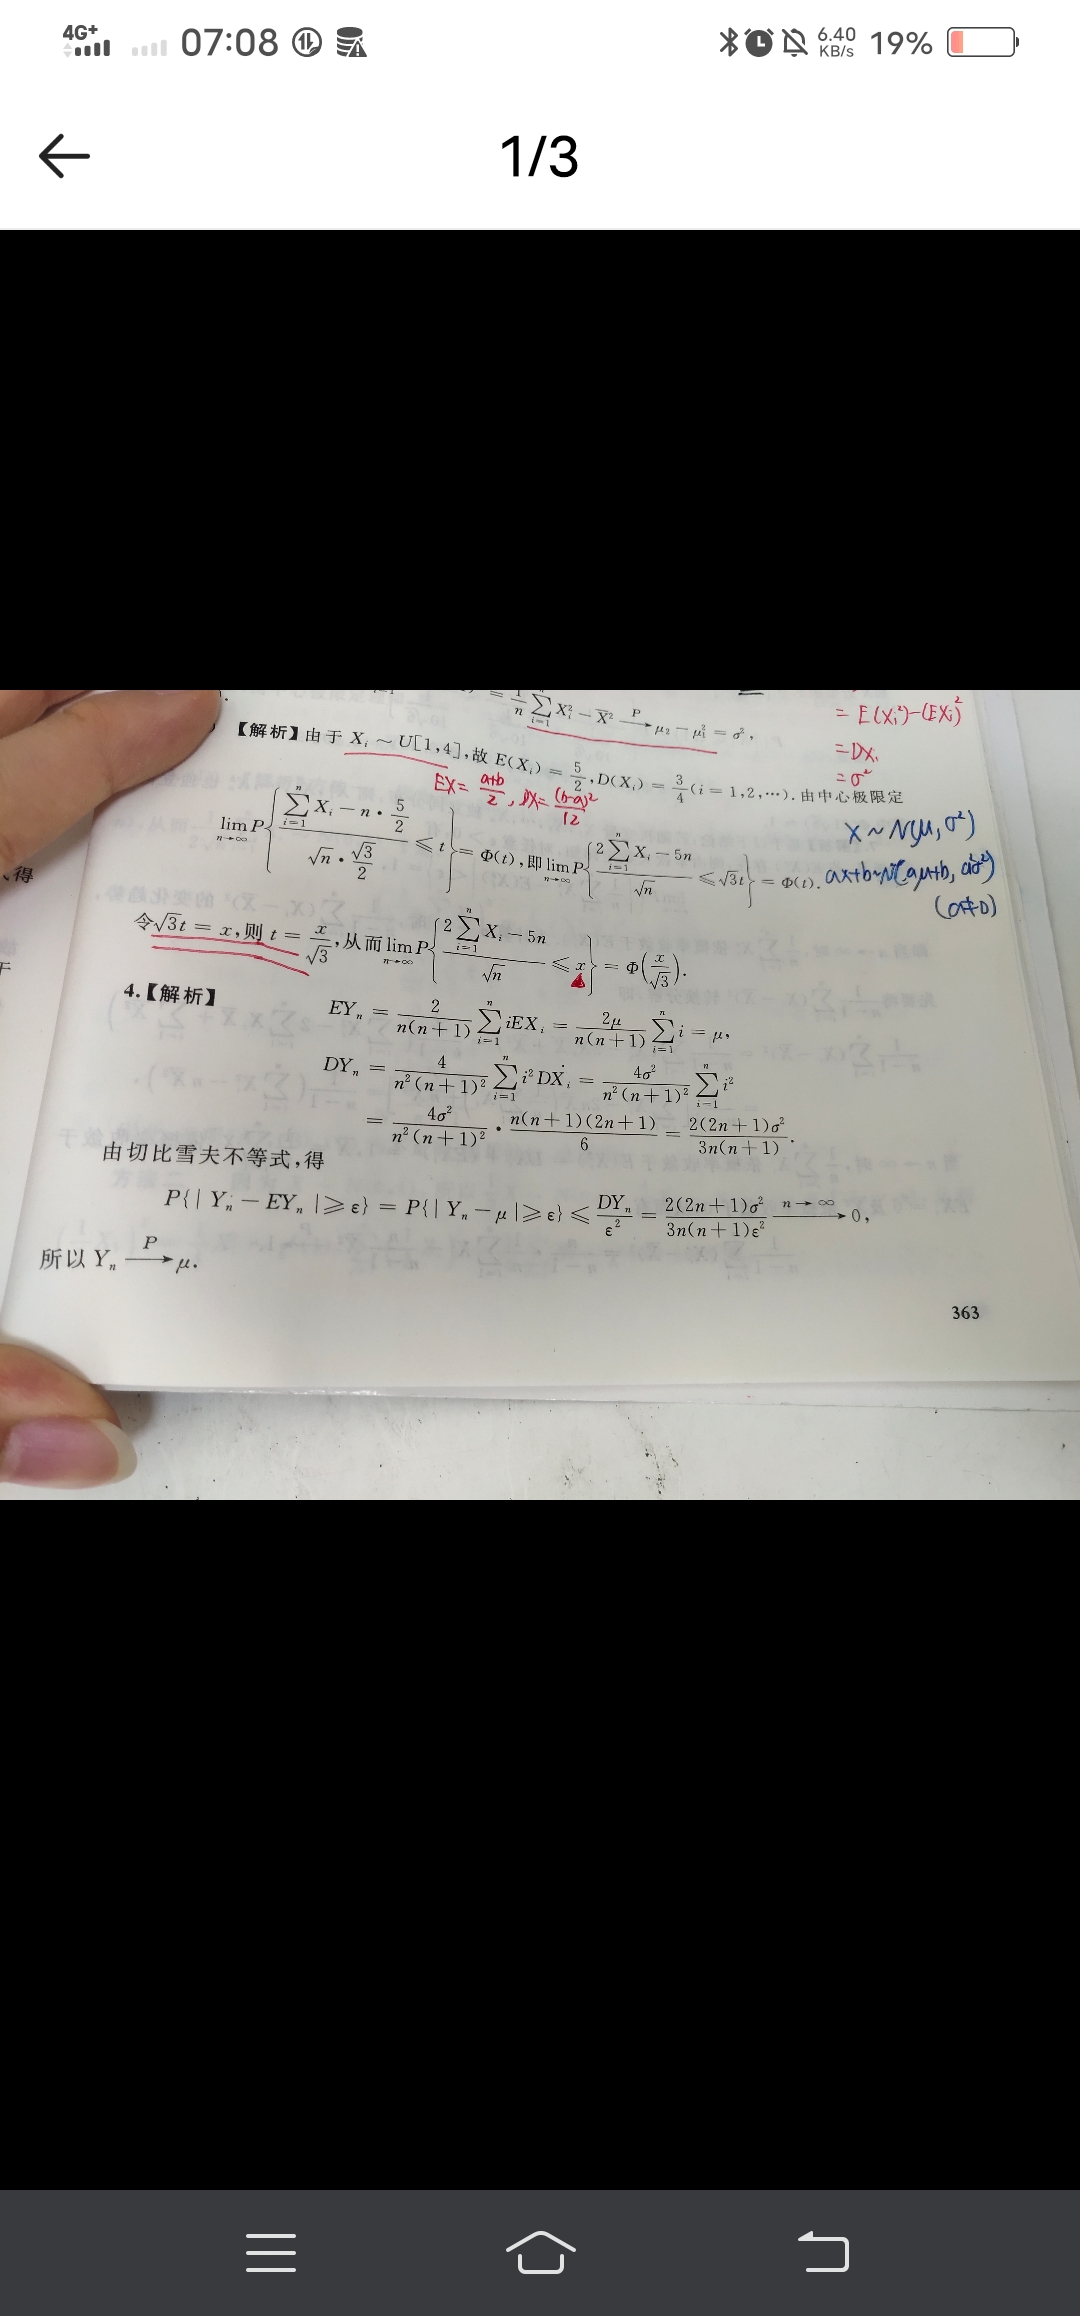 4G+ 07:08 6.40 KB/s 19%
1/3
= 1/n ∑_{i=1}^{n} X_i² − X̄² →^P μ₂ − μ₁² = σ²,
= E(X_i²)-(EX_i)²
= DX_i
= σ²
【解析】由于 X_i ~ U[1,4],故 E(X_i) = 5/2, D(X_i) = 3/4 (i = 1,2,⋯). 由中心极限定
EX= a+b/2, DX= (b-a)²/12
X ~ N(μ, σ²)
lim_{n→∞} P{ (∑_{i=1}^{n} X_i − n · 5/2) / (√n · √3/2) ≤ t } = Φ(t), 即 lim_{n→∞} P{ (2∑_{i=1}^{n} X_i − 5n) / √n ≤ √3t } = Φ(t).
ax+b~N(aμ+b, a²σ²)
(a≠0)
得
令√3t = x,则 t = x/√3,从而 lim_{n→∞} P{ (2∑_{i=1}^{n} X_i − 5n) / √n ≤ x } = Φ(x/√3).
4.【解析】
EY_n = 2/(n(n+1)) ∑_{i=1}^{n} iEX_i = 2μ/(n(n+1)) ∑_{i=1}^{n} i = μ,
DY_n = 4/(n²(n+1)²) ∑_{i=1}^{n} i²DX_i = 4σ²/(n²(n+1)²) ∑_{i=1}^{n} i²
= 4σ²/(n²(n+1)²) · n(n+1)(2n+1)/6 = 2(2n+1)σ²/(3n(n+1)).
由切比雪夫不等式,得
P{| Y_n − EY_n |≥ε} = P{| Y_n − μ |≥ε} ≤ DY_n/ε² = 2(2n+1)σ²/(3n(n+1)ε²) →^{n→∞} 0,
所以 Y_n →^P μ.
363